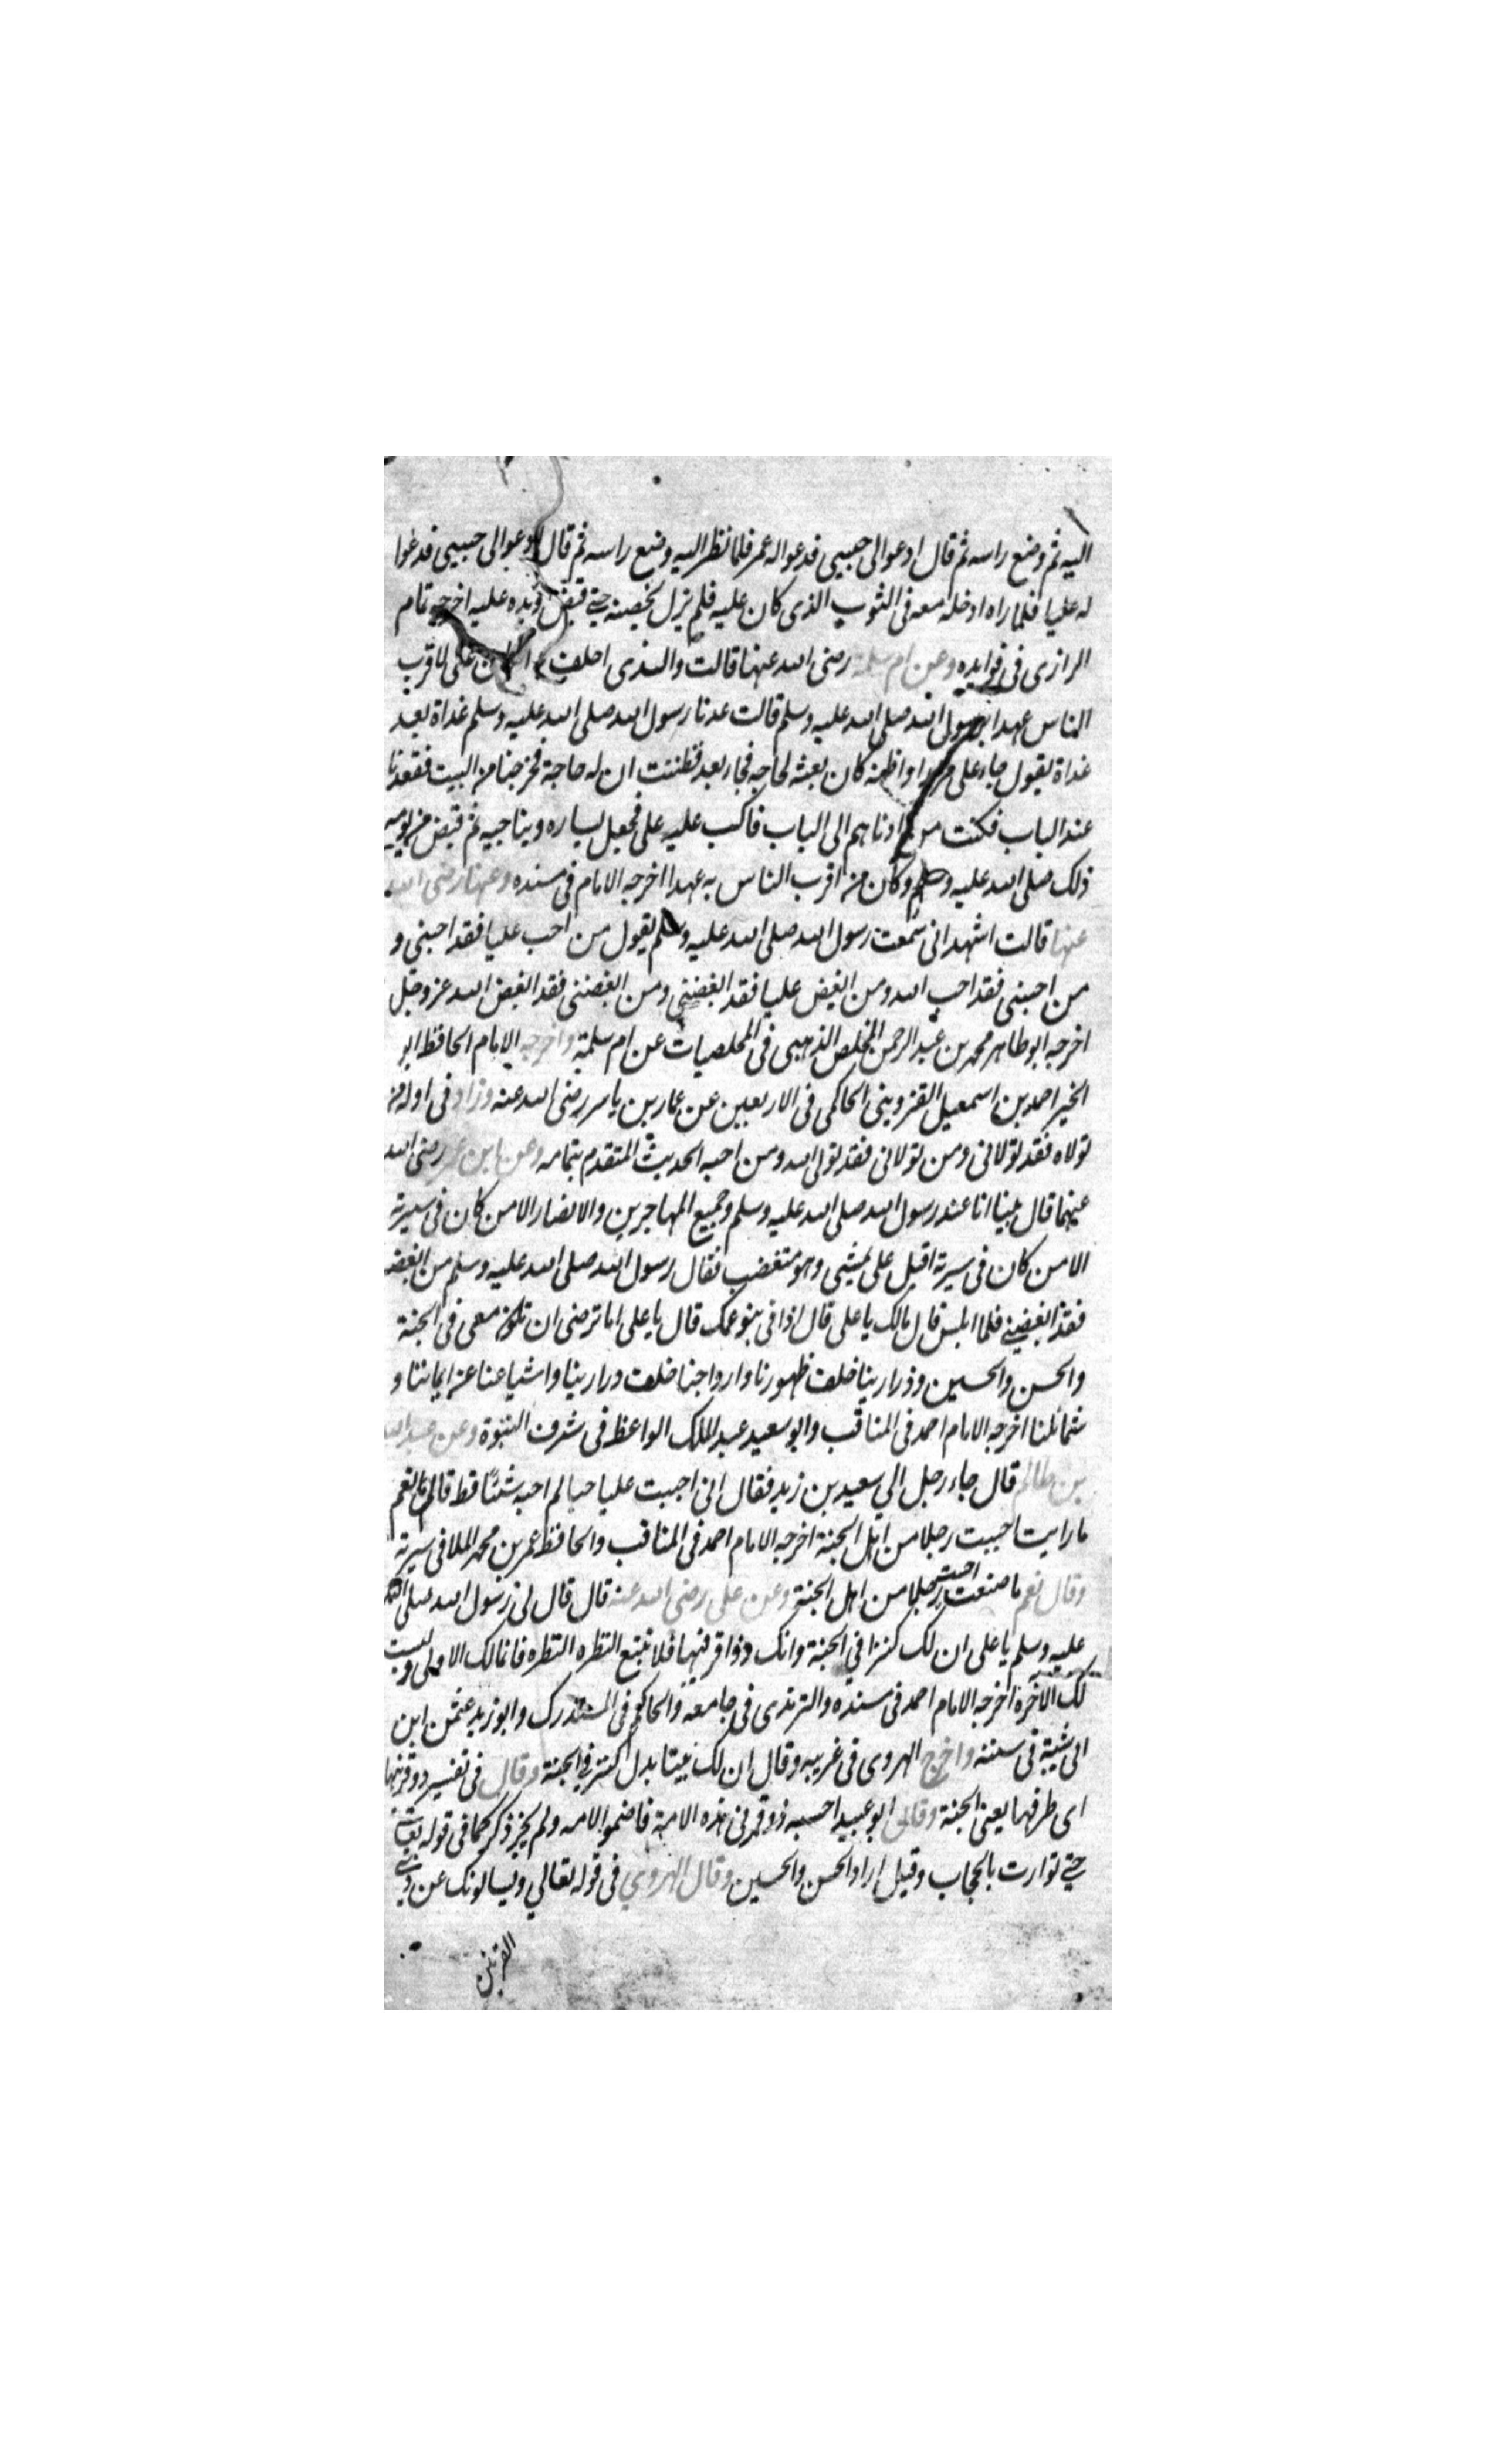 اليه ثم وضع راسه ثم قال ادعوا الى حبيبى فدعوا له عمر فلما نظر اليه وضع راسه ثم قال ادعوا الى حبيبى فدعوا
له عليا فلما راه ادخله معه فى الثوب الذى كان عليه فلم يزل يحضنه حتى قبض ويده عليه اخرجه تمام
الرازى فى فوايده وعن ام سلمة رضى الله عنها قالت والذى احلف به ان كان على لاقرب
الناس عهدا برسول الله صلى الله عليه وسلم قالت عدنا رسول الله صلى الله عليه وسلم غداة بعد
غداة يقول جاء على مرارا واظنه كان بعثه لحاجه فجاء بعد فظننت ان له حاجة فخرجنا من البيت فقعدنا
عند الباب فكنت من ادناهم الى الباب فاكب عليه على فجعل يساره ويناجيه ثم قبض من يوميه
ذلك صلى الله عليه وسلم وكان من اقرب الناس به عهدا اخرجه الامام فى مسنده وعنها رضى الله
عنها قالت اشهد انى سمعت رسول الله صلى الله عليه وسلم يقول من احب عليا فقد احبنى و
من احبنى فقد احب الله ومن ابغض عليا فقد ابغضنى ومن ابغضنى فقد ابغض الله عز وجل
اخرجه ابو طاهر محمد بن عبد الرحمن المخلص الذهبى فى المخلصيات عن ام سلمة واخرجه الامام الحافظ ابو
الخير احمد بن اسمعيل القزوينى الحاكمى فى الاربعين عن عمار بن ياسر رضى الله عنه وزاد فى اوله من
تولاه فقد تولانى ومن تولانى فقد تولى الله ومن احبه الحديث المتقدم بتمامه وعن ابن عمر رضى الله
عنهما قال بينا انا عند رسول الله صلى الله عليه وسلم وجميع المهاجرين والانصار الا من كان فى سيرتة
الا من كان فى سيرتة اقبل على يمشى وهو متغضب فقال رسول الله صلى الله عليه وسلم من ابغضه
فقد ابغضنى فلما جلس قال مالك يا على قال اذا فى بنو عمك قال يا على اما ترضى ان تكون معى فى الجنة
والحسن والحسين وذرارينا خلف ظهورنا وازواجنا خلف درارينا واشياعنا عن ايماننا و
شمائلنا اخرجه الامام احمد فى المناقب وابو سعيد عبد الملك الواعظ فى شرف النبوة وعن عبد الله
بن ظالم قال جاء رجل الى سعيد بن زيد فقال انى احببت عليا حبا لم احبه شئا قط قال نعم
ما رايت احببت رجلا من اهل الجنة اخرجه الامام احمد فى المناقب والحافظ عمر بن محمد الملا فى سيرته
وقال نعم ما صنعت احببت رجلا من اهل الجنة وعن على رضى الله عنه قال قال لى رسول الله صلى الله
عليه وسلم يا على ان لك كنزا فى الجنة وانك ذوا قرنيها فلا تتبع النظره النظره فانما لك الاولى وليست
لك الاخرة اخرجه الامام احمد فى مسنده والترمذى فى جامعه والحاكم فى المستدرك وابو زيد عثمن ابن
ابى شيبة فى سننه واخرج الهروى فى غريبه وقال ان لك بيتا بدل كنز فى الجنة وقال فى تفسير ذو قرنيها
اى طرفيها يعنى الجنة وقال ابو عبيد احسبه ذو قرنى هذه الامة فاضمر الامه ولم يجز ذكر كما فى قوله تعالى
حتى توارت بالحجاب وقيل اراد الحسن والحسين وقال الهروى فى قوله تعالى ويسالونك عن ذى
القرنين